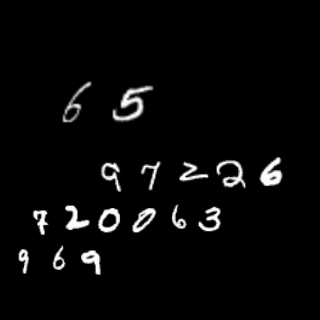 65
97226
720063
969